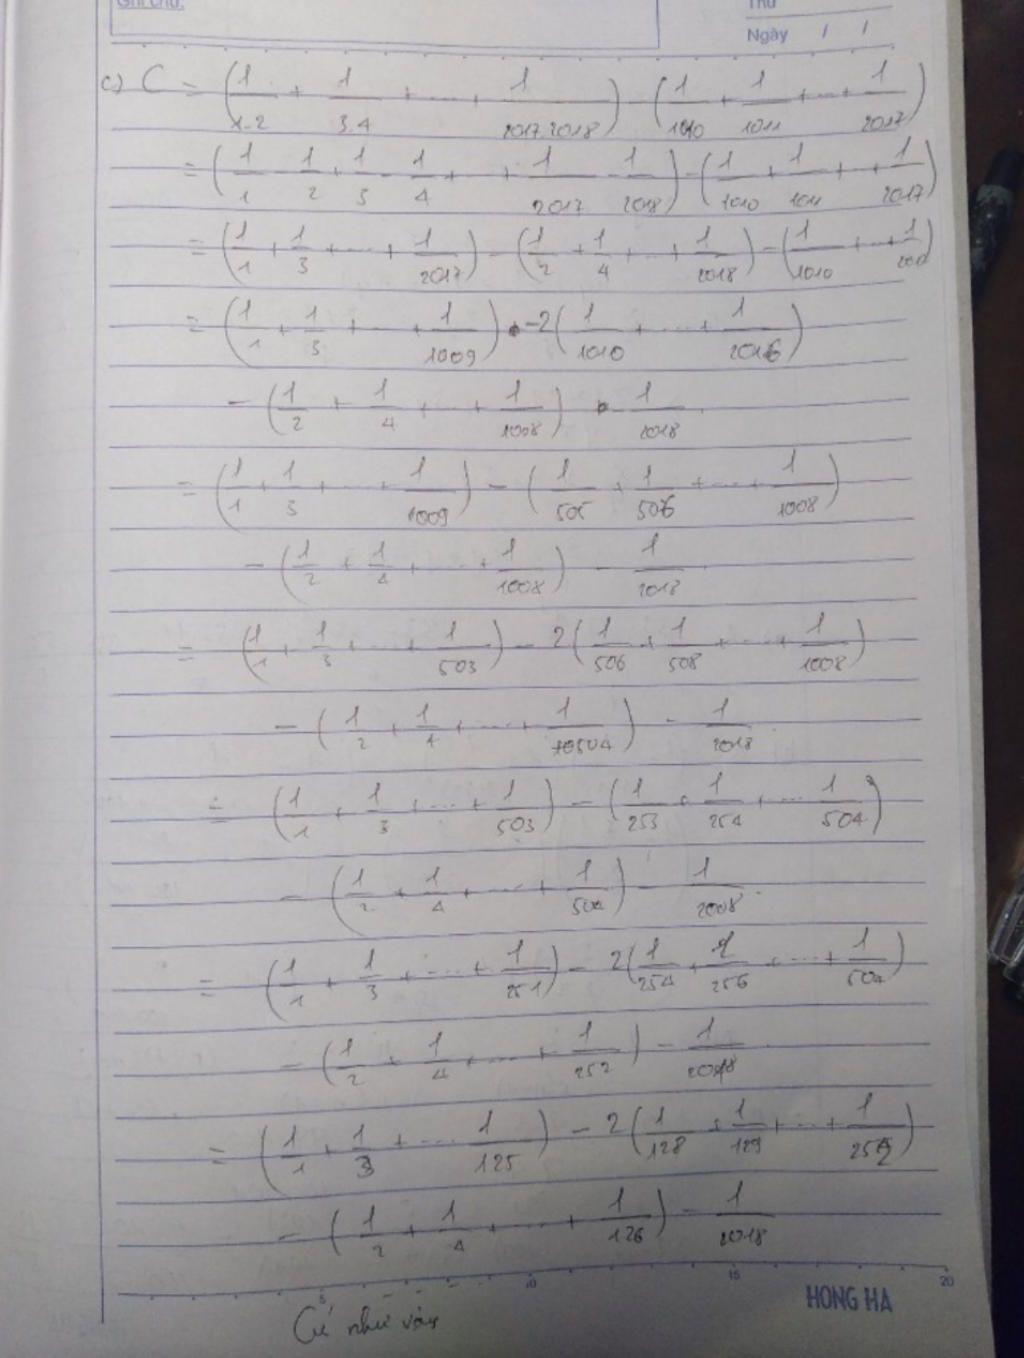 Ghi chú:
Thứ
Ngày / /
c) C = (1/1.2 + 1/3.4 + ... + 1/2017.2018) - (1/1010 + 1/1011 + ... + 1/2017)
= (1/1 - 1/2 + 1/3 - 1/4 + ... + 1/2017 - 1/2018) - (1/1010 + 1/1011 + ... + 1/2017)
= (1/1 + 1/3 + ... + 1/2017) - (1/2 + 1/4 + ... + 1/2018) - (1/1010 + ... + 1/2017)
= (1/1 + 1/3 + ... + 1/1009) - 2(1/1010 + ... + 1/2016)
- (1/2 + 1/4 + ... + 1/1008) - 1/2018
= (1/1 + 1/3 + ... + 1/1009) - (1/505 + 1/506 + ... + 1/1008)
- (1/2 + 1/4 + ... + 1/1008) - 1/2018
= (1/1 + 1/3 + ... + 1/503) - 2(1/506 + 1/508 + ... + 1/1008)
- (1/2 + 1/4 + ... + 1/504) - 1/2018
= (1/1 + 1/3 + ... + 1/503) - (1/253 + 1/254 + ... 1/504)
- (1/2 + 1/4 + ... + 1/504) - 1/2008
= (1/1 + 1/3 + ... + 1/251) - 2(1/254 + 1/256 + ... + 1/504)
- (1/2 + 1/4 + ... + 1/252) - 1/2018
= (1/1 + 1/3 + ... 1/125) - 2(1/128 + 1/129 + ... + 1/252)
- (1/2 + 1/4 + ... + 1/126) - 1/2018
5 10 15 20
HONG HA
Cứ như vậy